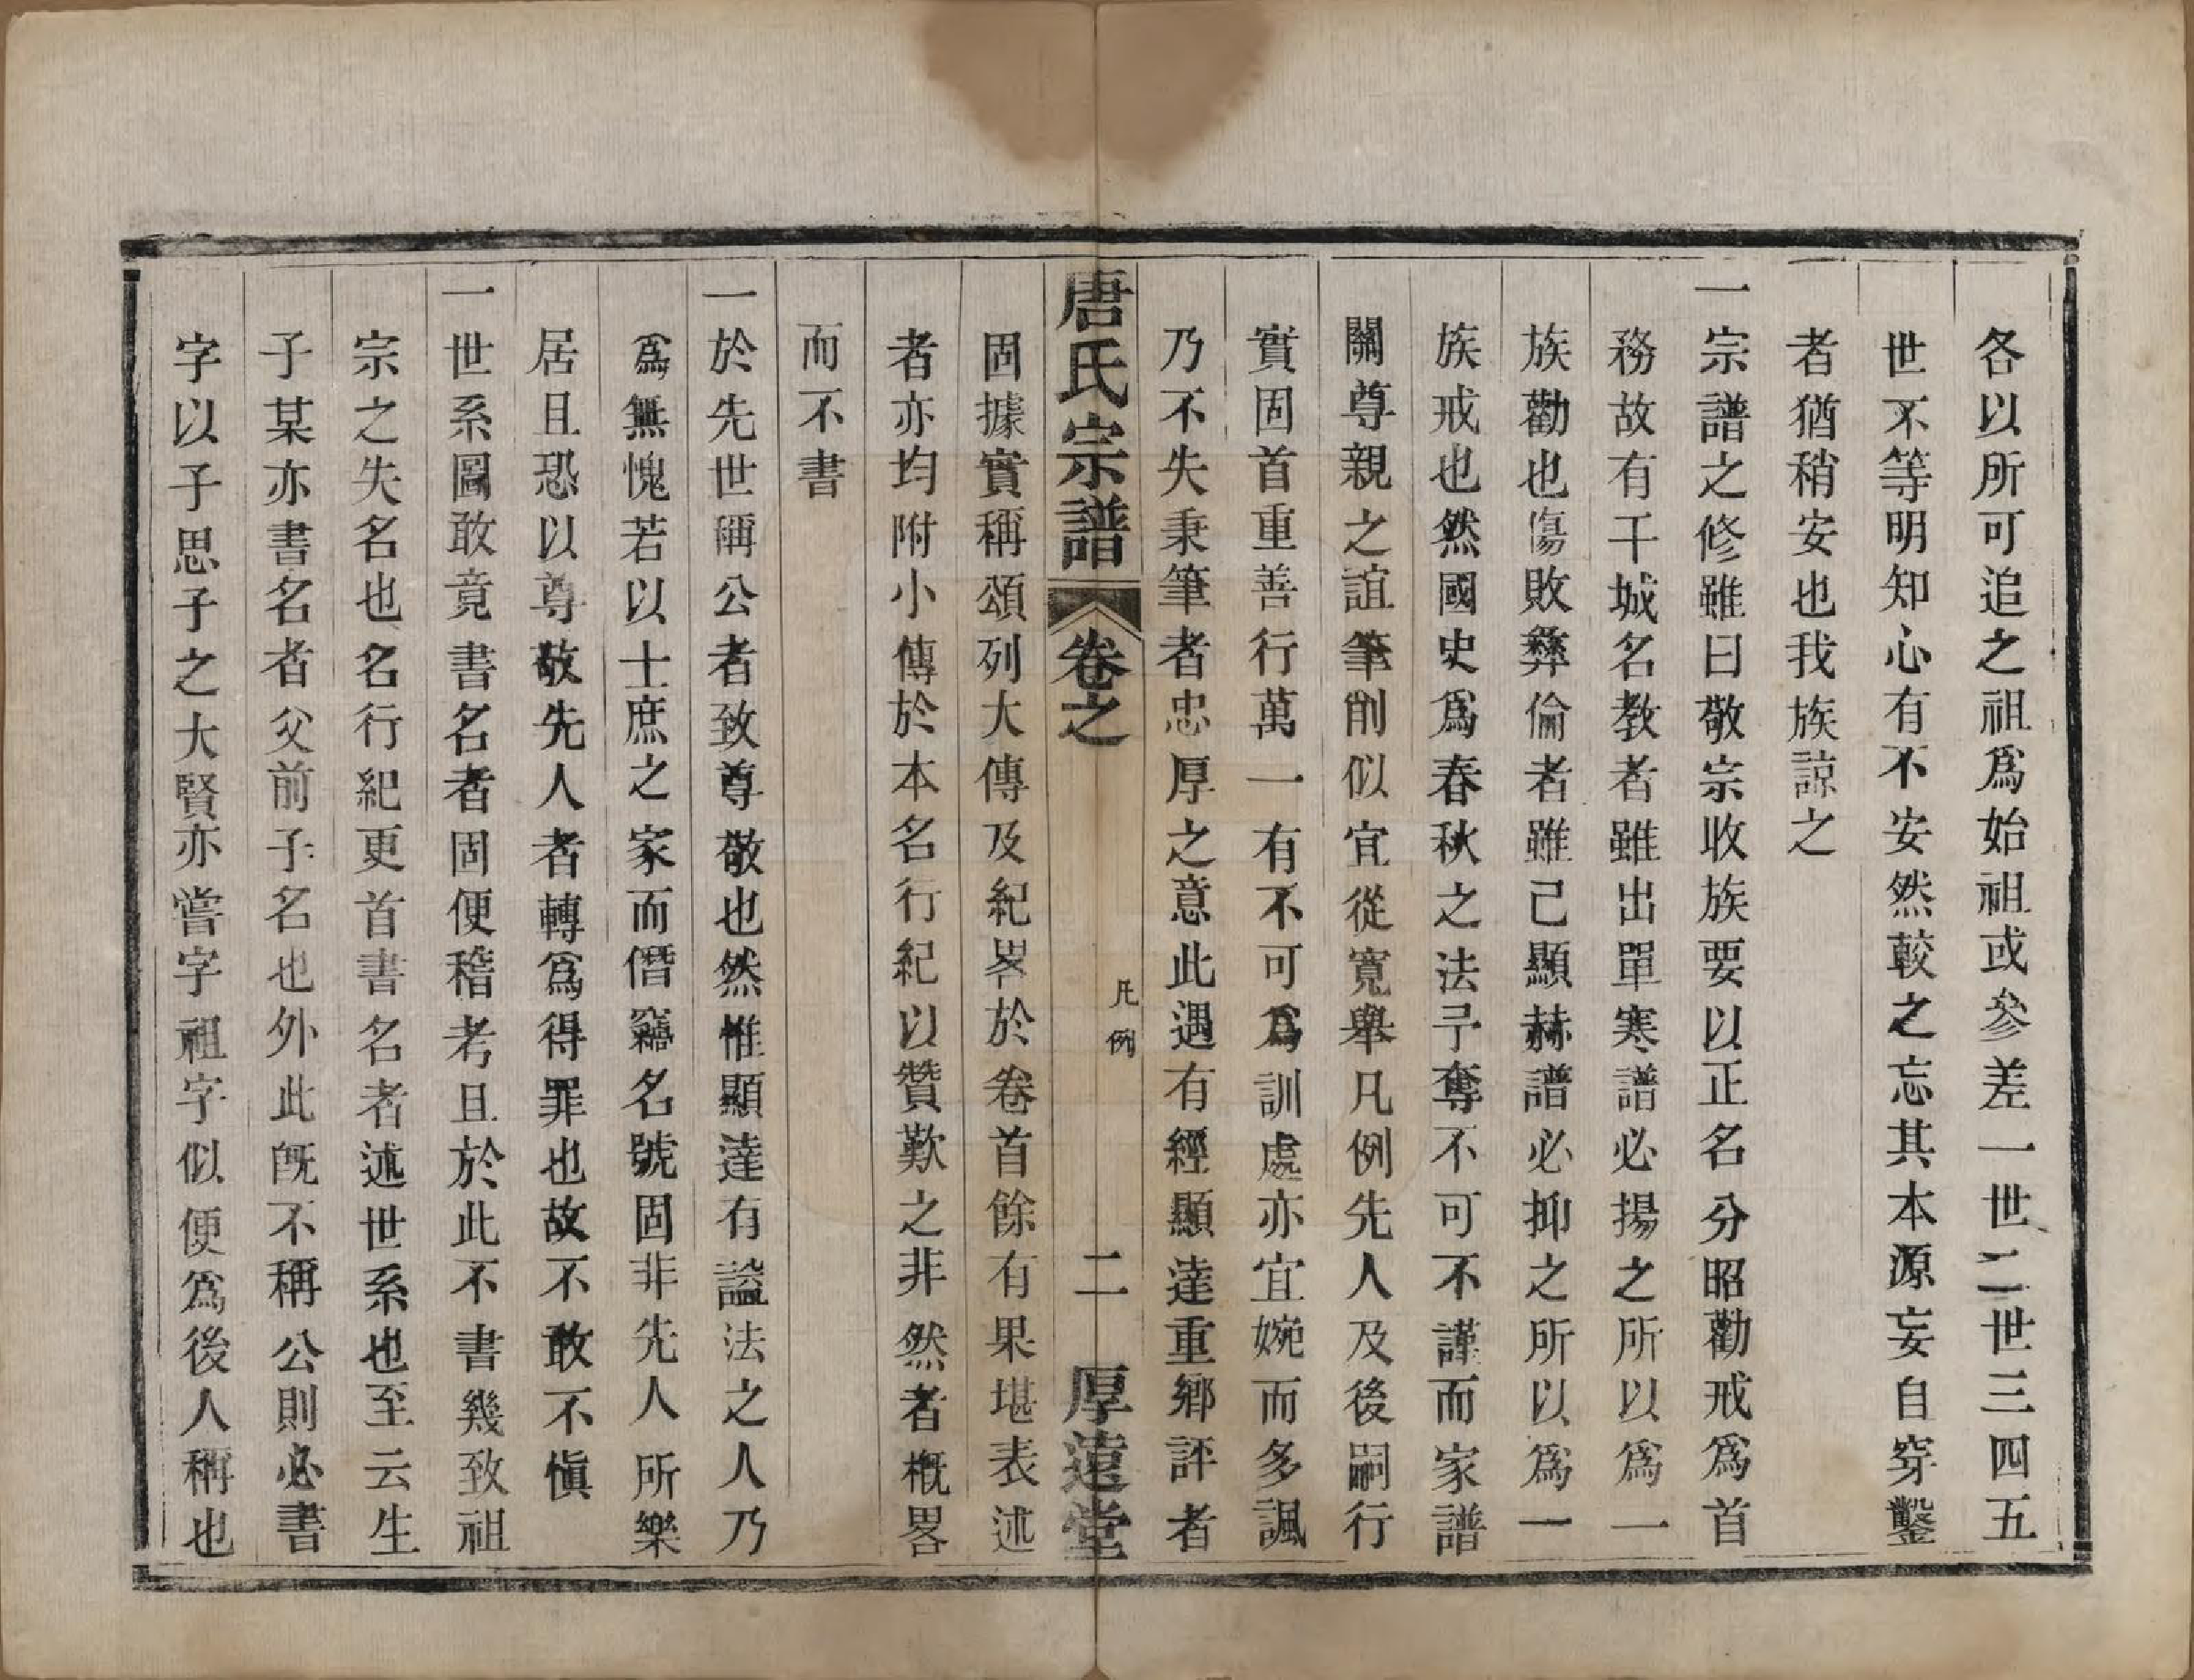 各以所可追之祖爲始祖或參差一世二世三四五
世不等明知心有不安然較之忘其本源妄自穿鑿
者猶稍安也我族諒之
一宗譜之修雖曰敬宗收族要以正名分昭勸戒爲首
務故有干城名教者雖出單寒譜必揚之所以爲一
族勸也傷敗彝倫者雖己顯赫譜必抑之所以爲一
族戒也然國史爲春秋之法予奪不可不謹而家譜
關尊親之誼筆削似宜從寬舉凡例先人及後嗣行
實固首重善行萬一有不可爲訓處亦宜婉而多諷
乃不失秉筆者忠厚之意此遇有經顯達重鄉評者
唐氏宗譜 卷之 凡例 二 厚遠堂
固據實稱頌列大傳及紀畧於卷首餘有果堪表述
者亦均附小傳於本名行紀以贊歎之非然者概畧
而不書
一於先世稱公者致尊敬也然惟顯達有謚法之人乃
爲無愧若以士庶之家而僭竊名號固非先人所樂
居且恐以尊敬先人者轉爲得罪也故不敢不慎
一世系圖敢竟書名者固便稽考且於此不書幾致祖
宗之失名也名行紀更首書名者述世系也至云生
子某亦書名者父前子名也外此旣不稱公則必書
字以子思子之大賢亦嘗字祖字似便爲後人稱也